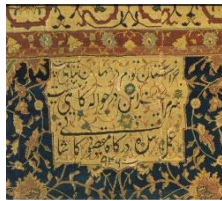 جز آستان توام در جهان پناهی نیست
سر مرا بجز این در حواله گاهی نیست
عمل بنده درگاه مقصود کاشانی
۹۴۶